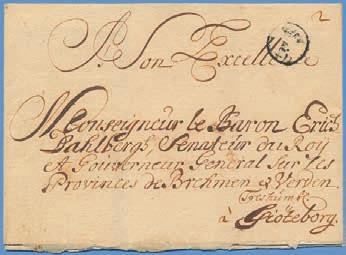 2
A Son Excellence
Monseigneur le Baron Erich
Dahlbergh, Senateur du Roy
et Gouverneur General Sur les
Provinces de Brehmen & Verden.
à Giöteborg.